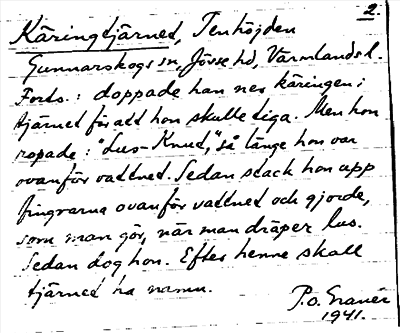 2.
Käringtjärnet, Tenhöjden
Gunnarskogs sn, Jösse hd, Värmlands l.
Forts.: doppade han ner käringen i
tjärnet för att hon skulle tiga. Men hon
ropade: "Lus-Knud," så länge hon var
ovanför vattnet. Sedan stack hon upp
fingrarna ovanför vattnet och gjorde,
som man gör, när man dräper lus.
Sedan dog hon. Efter henne skall
tjärnet ha namn.
P.o. Granér
1941.